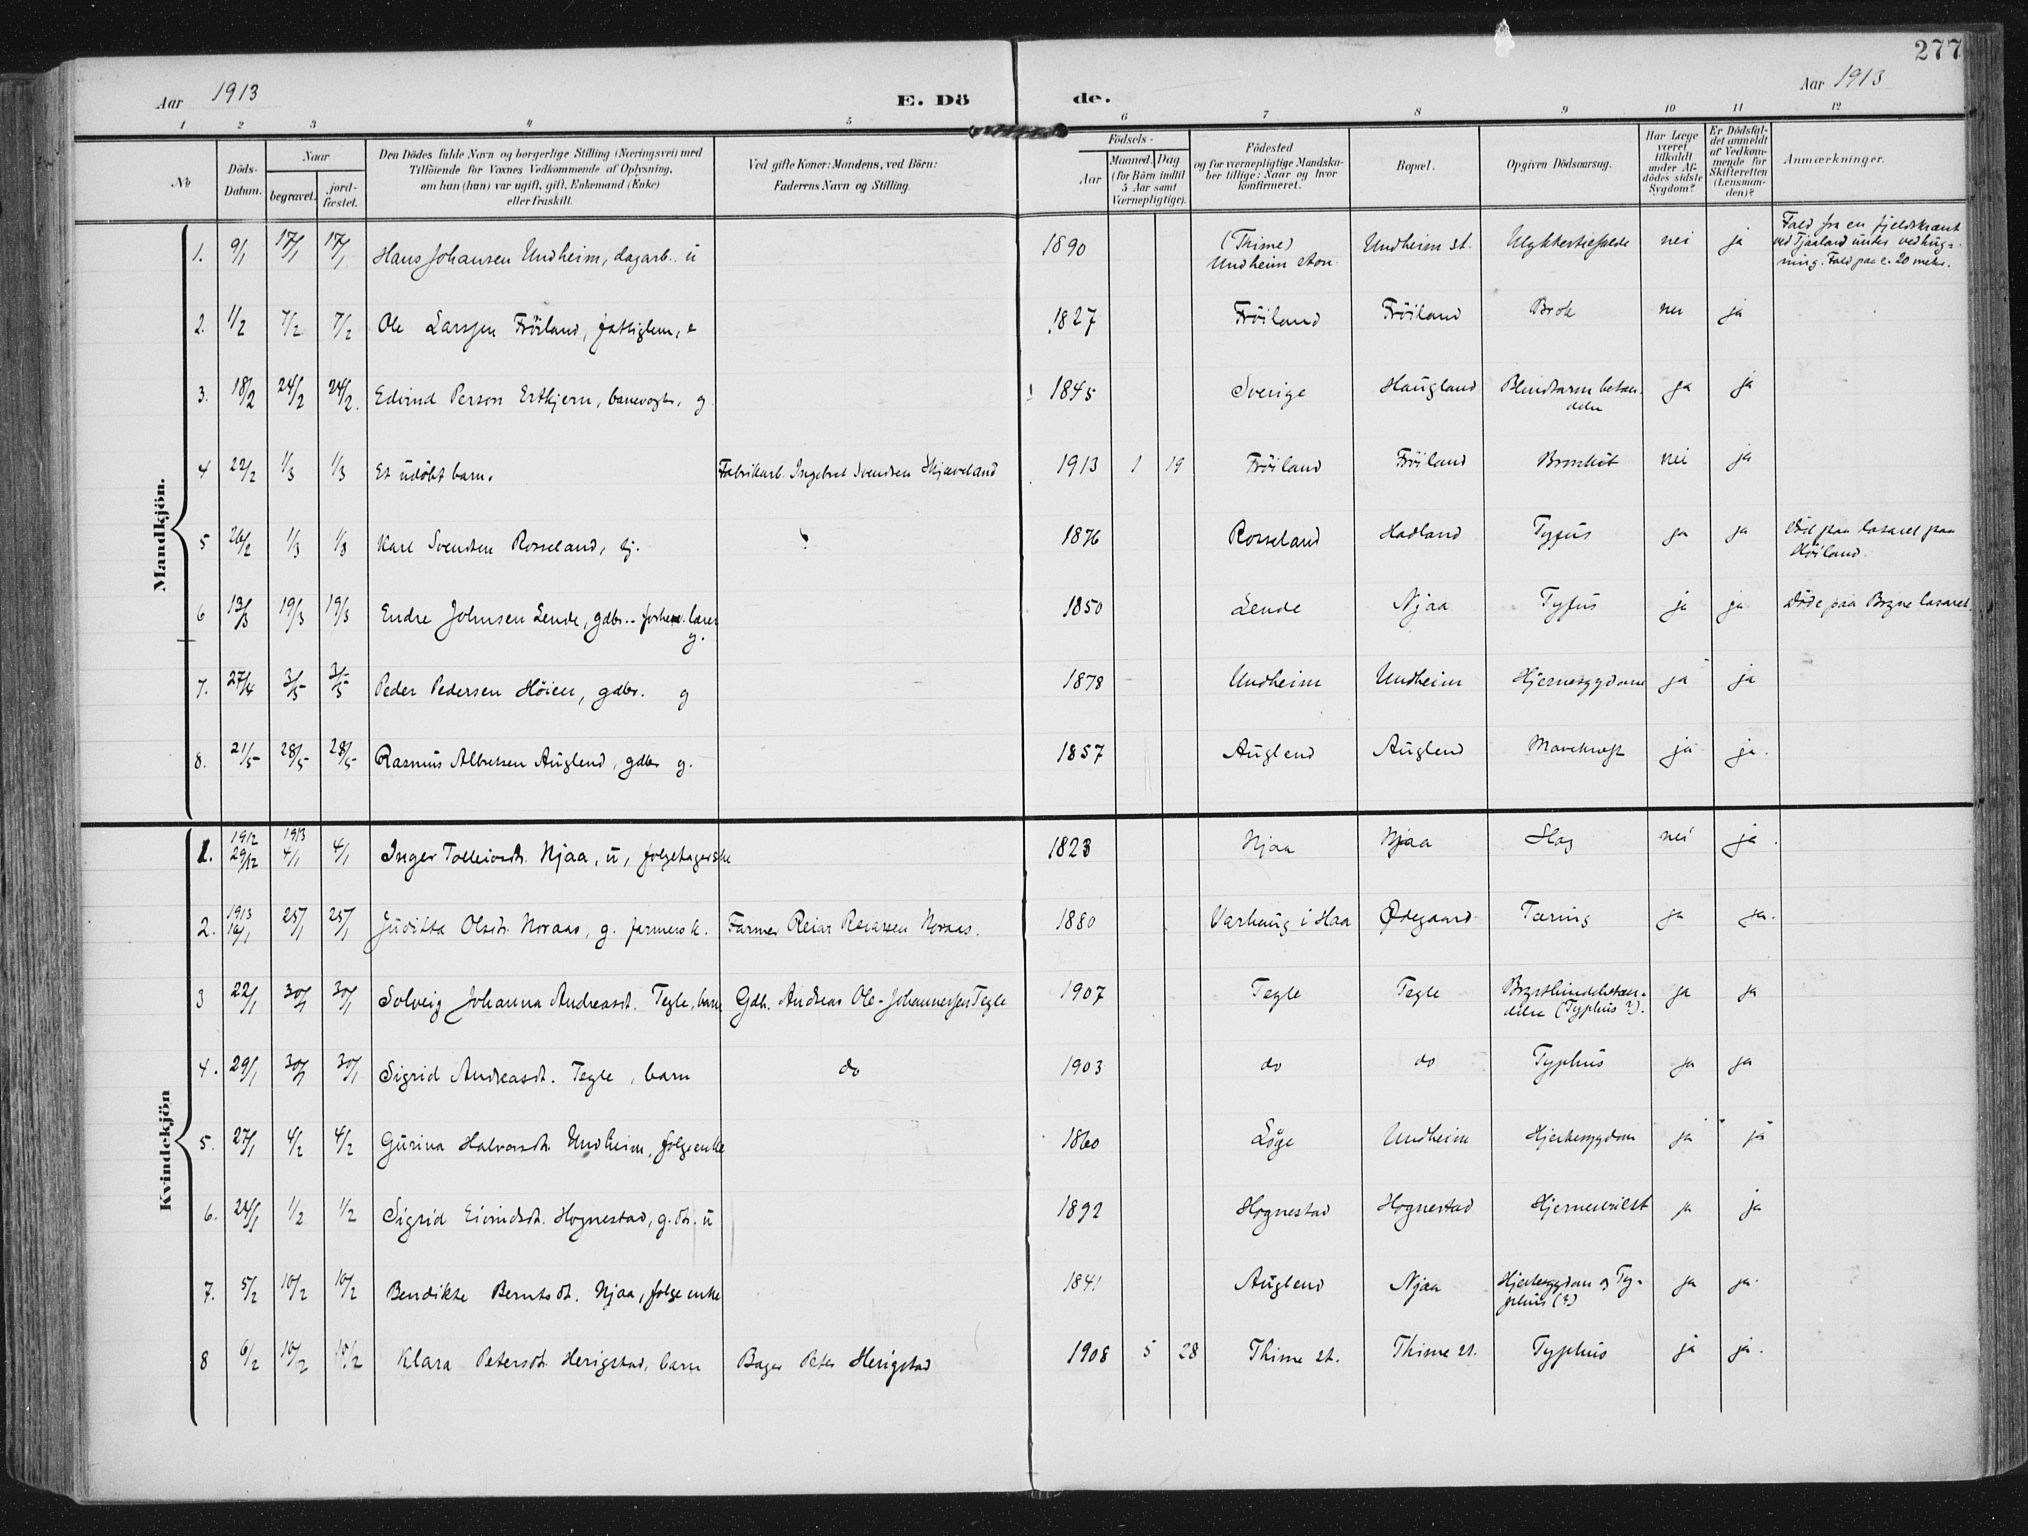 277
Aar 1913
E. Dö de.
Aar 1913
1 2 3 4 5 6 7 8 9 10 11 12
No
Döds-Datum.
Naar
begravet. jord-fæstet.
Den Dödes fulde Navn og borgerlige Stilling (Næringsvei) med
Tilföiende for Voxnes Vedkommende af Oplysning,
om han (hun) var ugift, gift, Enkemand (Enke)
eller fraskilt.
Ved gifte Koner: Mandens, ved Börn:
Faderens Navn og Stilling.
Födsels-
Aar
Maaned. Dag
(for Börn indtil
5 Aar samt
Værnepligtige).
Födested
og for værnepligtige Mandska-
ber tillige: Naar og hvor
konfirmeret.
Bopæl.
Opgiven Dödsaarsag.
Har Læge
været
tilkaldt
under Af-
dödes sidste
Sygdom?
Er Dödsfal-
det anmeldt
af Vedkom-
mende for
Skifteretten
(Lensman-
den)?
Anmærkninger.
Mandkjön.
1. 9/1 17/1 17/1 Hans Johansen Undheim, dagarb. u 1890 (Thime) Undheim Undheim st. Ulykkestilfelde nei ja Fald fra en fjeldskrent
ved Tjaaland under vedhug-
ning. Fald paa c. 20 metr.
2. 1/2 7/2 7/2 Ole Larssen Fröiland, fattiglem, e 1827 Fröiland Fröiland Brok nei ja
3. 18/2 24/2 24/2. Edvind Person Ertkjern, banevogtr. g. 1845 Sverige Haugland Blindtarm betæn-
delse ja ja
4 22/2 1/3 1/3 Et udöbt barn. Fabrikarb. Ingebret Svendsen Skjæveland 1913 1 19 Fröiland Fröiland Bronkit nei ja
5 26/2 1/3 1/3 Karl Svendsen Rosseland, 1876 Rosseland Hadland Tyfus ja ja Död paa lasaret paa
Höiland.
6 13/3 19/3 19/3 Endre Johnsen Lende, gdbr. forhenv. lærer
g. 1850 Lende Njaa Tyfus ja ja Döde paa Bryne lasaret.
7. 27/4 3/5 3/5 Peder Pedersen Höien, gdbr. g 1878 Undheim Undheim Hjernesygdom ja ja
8. 21/5 28/5 28/5 Rasmus Albretsen Auglend, gdbr g. 1857 Auglend Auglend Mavekræft ja ja.
Kvindekjön
1. 1912 29/12 1913 4/1 4/1 Inger Tolleivsdt. Njaa, u, folgetagerske 1823 Njaa Njaa Slag nei ja.
2. 1913 16/1 25/1 25/1 Juditta Olsdt. Noraas, g. farmersk. Farmer Reiar Reiarsen Noraas. 1880 Varhaug i Haa Ødegaard Tæring ja ja.
3 22/1 30/1 30/1 Solveig Johanna Andreasdt. Tegle, barn Gdb. Andreas Ole-Johannessen Tegle 1907 Tegle Tegle Brysthindebetæn-
delse (Typhus?). ja ja
4. 29/1 30/1 30/1 Sigrid Andreasdt. Tegle, barn do 1903 do do Typhus ja ja
5. 27/1 4/2 4/2 Gurina Halvorsdt. Undheim, folgeenke 1860 Löge Undheim Hjertesygdom ja ja
6. 24/1 1/2 1/2 Sigrid Eivindsdt. Hognestad, g.dt. u 1892 Hognestad Hognestad Hjernesvulst ja ja
7. 5/2 10/2 10/2 Bendikte Berntsdt. Njaa, folgeenke 1841 Auglend Njaa Hjertesygdom og Ty-
phus (?) ja ja.
8 6/2 10/2 10/2 Klara Petersdt. Herigstad, barn Bager Peter Herigstad 1908 5 28 Thime st. Thime st. Typhus ja ja.